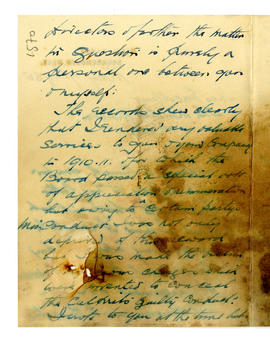 1570
Directors & further the matter
in question is purely a
personal one between you
& myself.
The records shew clearly
that I rendered very valuable
services to you & your Company
in 1910-11. for which the
Board passed a special vote
of appreciation & remuneration
but owing to certain party
Mis Conduct I was not only
deprived of this reward
but was made the
own
were invented to conceal
the Culprits guilty Conduct.
I wrote to you at the time but